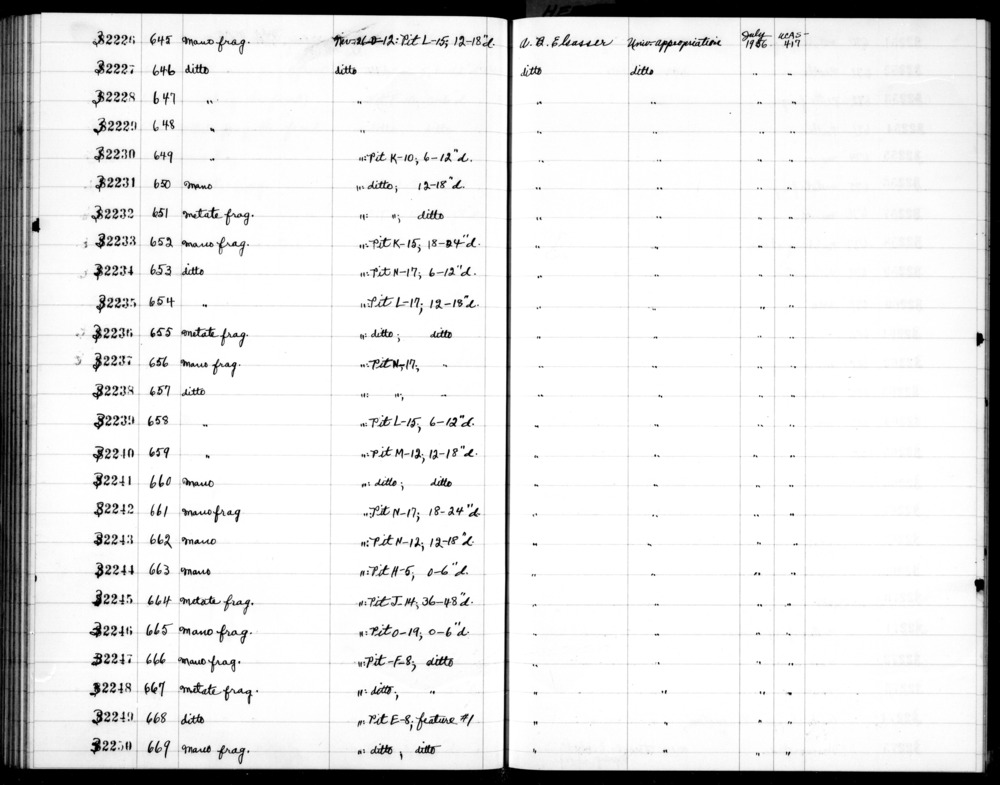 32226 645 mano frag. Nev-26-D-12: Pit L-15; 12-18"d. A. B. Elsasser Univ. appropriation July 1956 UCAS-417
32227 646 ditto ditto ditto ditto " "
32228 647 " " " " " "
32229 648 " " " " " "
32230 649 " ": Pit K-10; 6-12"d. " " " "
32231 650 mano ": ditto; 12-18"d. " " " "
32232 651 metate frag. ": "; ditto " " " "
32233 652 mano frag. ": Pit K-15; 18-24"d. " " " "
32234 653 ditto ": Pit N-17; 6-12"d. " " " "
32235 654 " ": Pit L-17; 12-18"d. " " " "
32236 655 metate frag. ": ditto; ditto " " " "
32237 656 mano frag. ": Pit N-17; " " " " "
32238 657 ditto ": "; " " " " "
32239 658 " ": Pit L-15; 6-12"d. " " " "
32240 659 " ": Pit M-12; 12-18"d. " " " "
32241 660 mano ": ditto; ditto " " " "
32242 661 mano frag ": Pit N-17; 18-24"d. " " " "
32243 662 mano ": Pit N-12; 12-18"d. " " " "
32244 663 mano ": Pit H-5; 0-6"d. " " " "
32245 664 metate frag. ": Pit J-14; 36-48"d. " " " "
32246 665 mano frag. ": Pit O-19; 0-6"d. " " " "
32247 666 mano frag. ": Pit F-8; ditto " " " "
32248 667 metate frag. ": ditto; " " " " "
32249 668 ditto ": Pit E-8; feature #1 " " " "
32250 669 mano frag. ": ditto; ditto " " " "